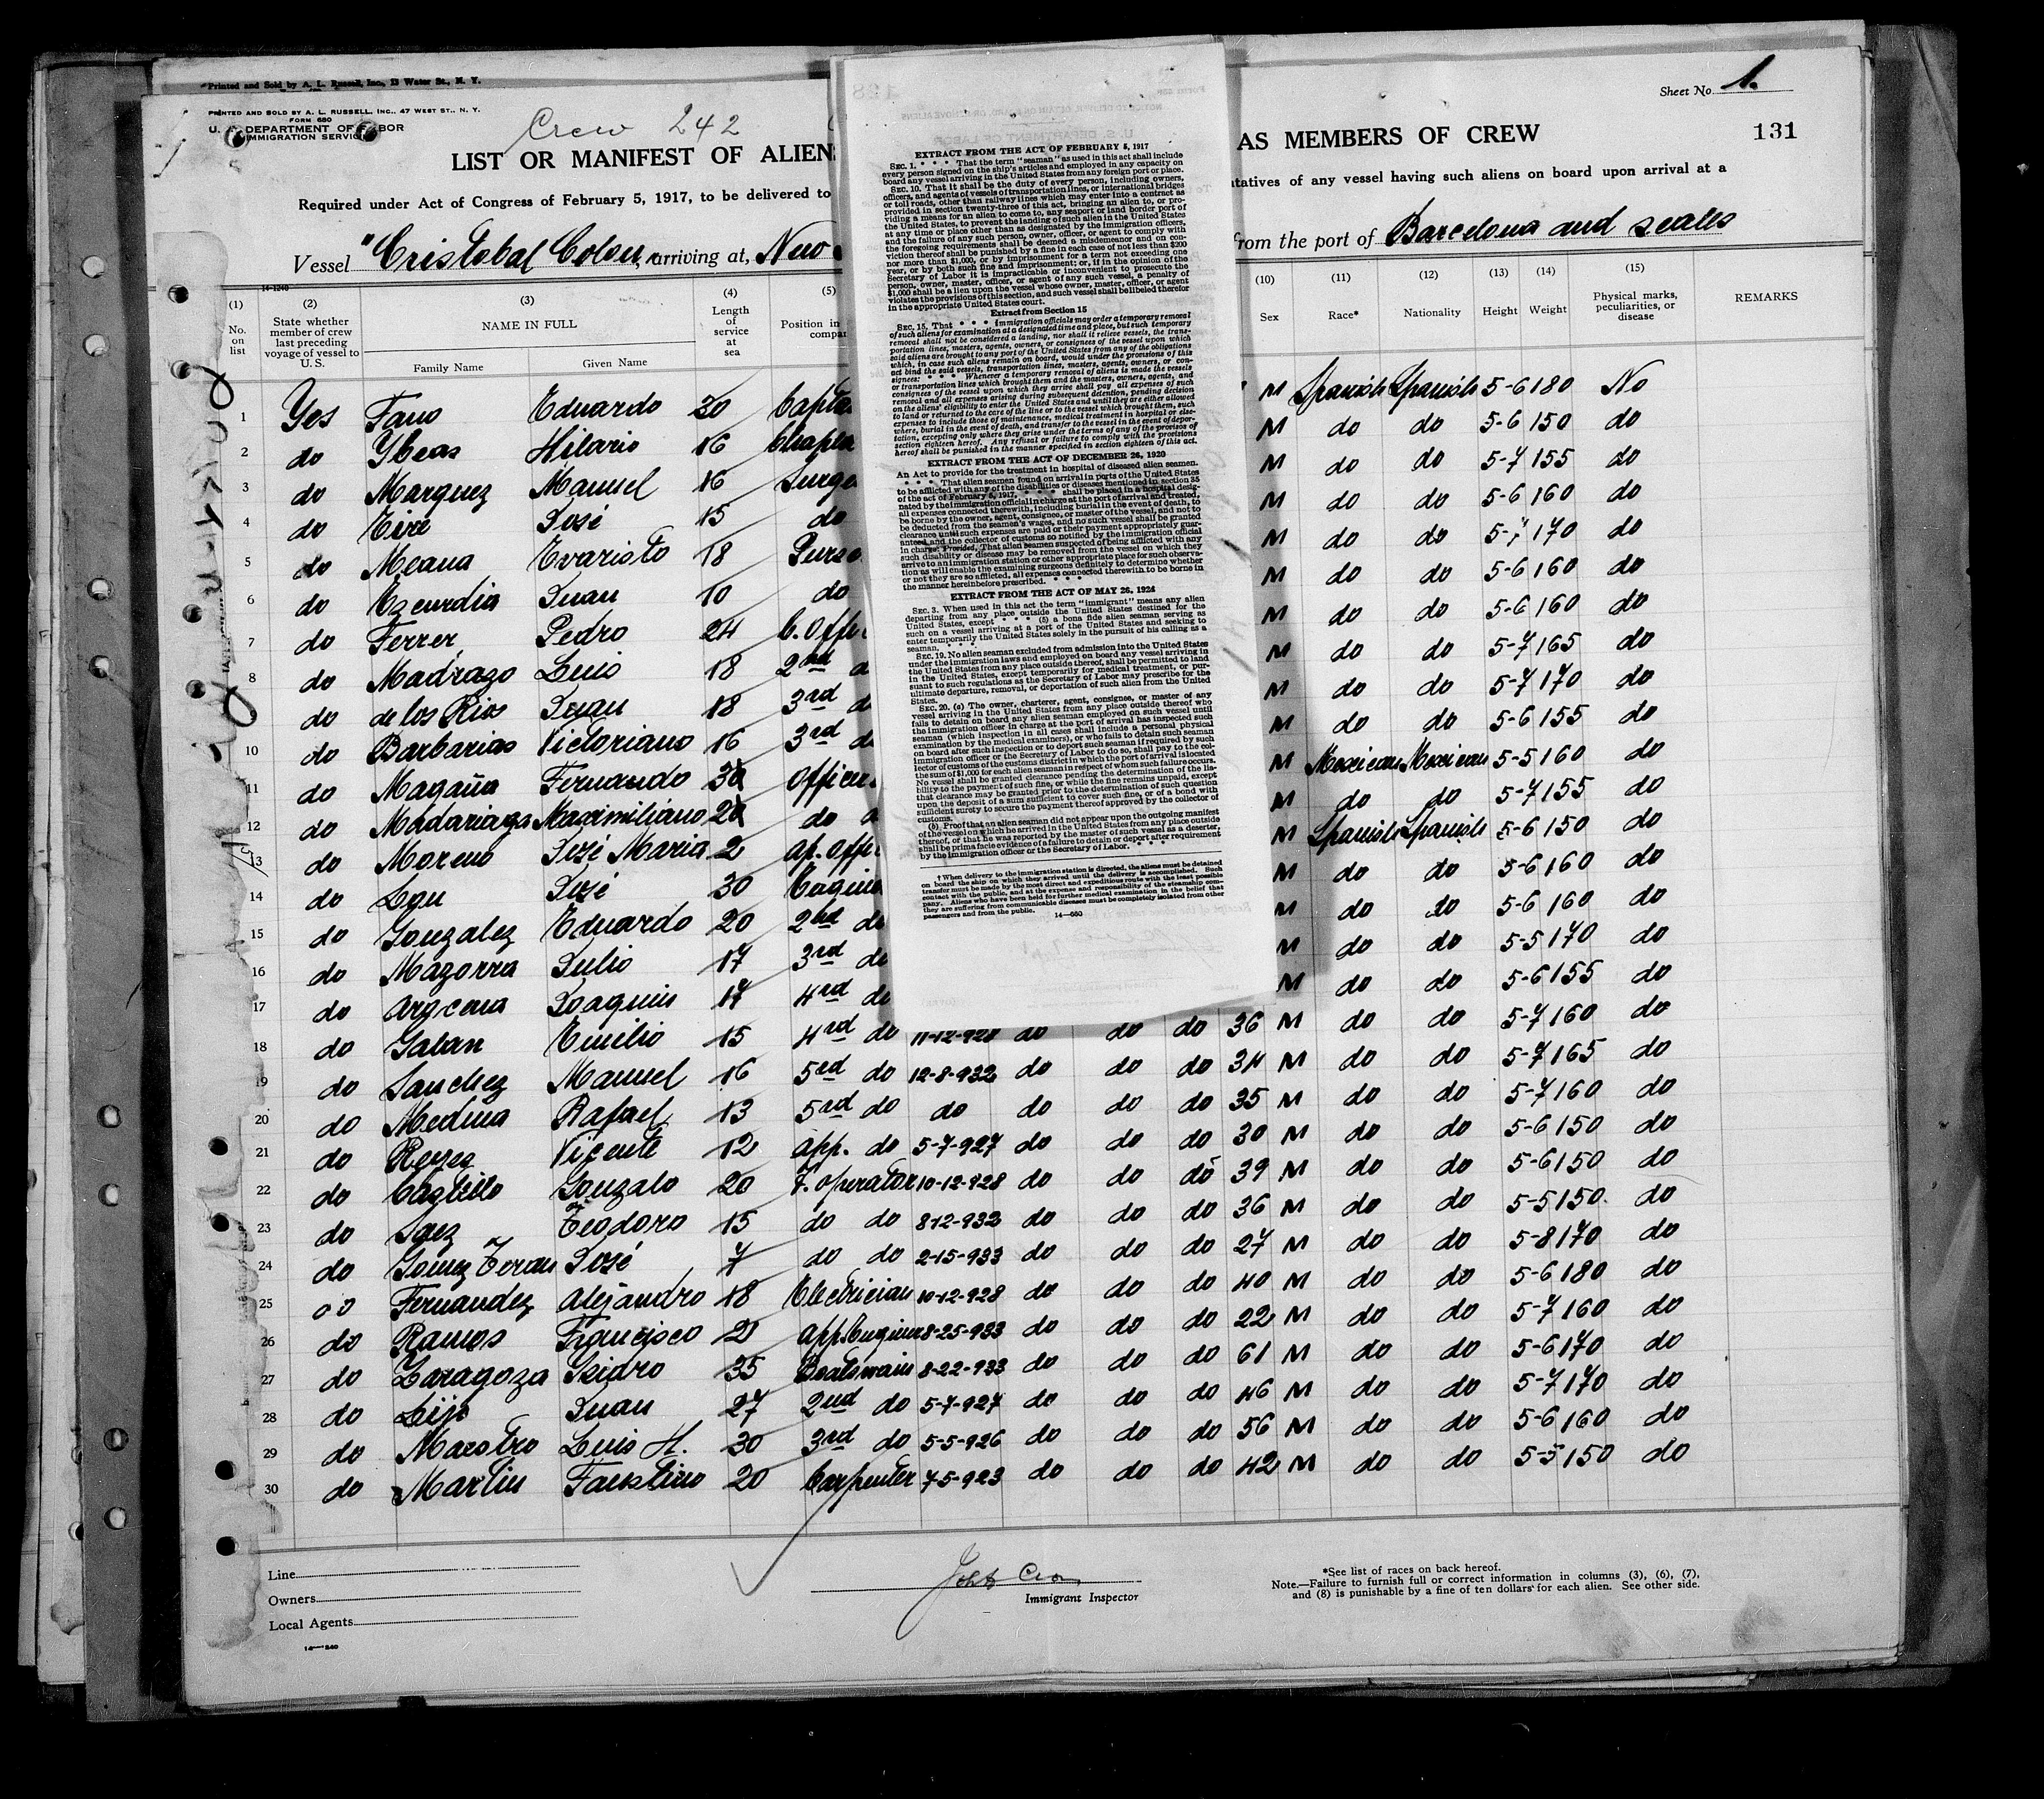 *Printed and Sold by A. L. Russell, Inc., 13 Water St., N. Y.
PRINTED AND SOLD BY A. L. RUSSELL, INC., 47 WEST ST., N. Y.
FORM 680
U. S. DEPARTMENT OF LABOR
IMMIGRATION SERVICE
Crew 242
Sheet No. 1.
131
LIST OR MANIFEST OF ALIEN
AS MEMBERS OF CREW
Required under Act of Congress of February 5, 1917, to be delivered to
tatives of any vessel having such aliens on board upon arrival at a
Vessel "Cristobal Colon", arriving at, New
from the port of Barcelona and scales
14-1240
(1) (2) (3) (4) (5) (10) (11) (12) (13) (14) (15)
No. on list
State whether member of crew last preceding voyage of vessel to U. S.
NAME IN FULL
Family Name Given Name
Length of service at sea
Position in
Sex Race* Nationality Height Weight
Physical marks, peculiarities, or disease
REMARKS
1 Yes Fano Eduardo 20 M Spanish Spanish 5-6 180 No
2 do Ybeas Hilario 16 M do do 5-6 150 do
3 do Marquez Manuel 16 M do do 5-7 155 do
4 do José 15 do M do do 5-6 160 do
5 do Meana Evaristo 18 M do do 170 do
6 do Juan 10 do M do do 5-6 160 do
7 do Ferrer Pedro 24 M do do 5-6 160 do
8 do Madrazo Luis 18 2nd M do do 5-7 165 do
9 do de los Rios Juan 18 3rd M do do 5-7 170 do
10 do Barbarias Victoriano 16 3rd M do do 5-6 155 do
11 do Magaña Fernando M Mexican Mexican 5-5 160 do
12 do Madariaga Maximiliano do M do do 5-7 155 do
13 do Moreno José Maria 2 M Spanish Spanish 5-6 150 do
14 do José 30 M do do 5-6 160 do
15 do Gonzalez Eduardo 20 2nd do M do do 5-6 160 do
16 do Mazorra Julio 17 3rd do M do do 5-5 170 do
17 do Joaquin 17 4rd do M do do 5-6 155 do
18 do Galan Emilio 15 4rd do 11-12-928 do do do 36 M do do 5-7 160 do
19 do Sanchez Manuel 16 5rd do 12-8-932 do do do 34 M do do 5-7 165 do
20 do Medina Rafael 13 5rd do do do do do 35 M do do 5-7 160 do
21 do Reyes Vicente 12 app. do 5-7-927 do do do 30 M do do 5-6 150 do
22 do Gonzalo 20 operator 10-12-928 do do do 39 M do do 5-6 150 do
23 do Saez Teodoro 15 do do 8-12-932 do do do 36 M do do 5-5 150 do
24 do Gomez Teran José 7 do do 2-15-933 do do do 27 M do do 5-8 170 do
25 do Fernandez Alejandro 18 Electrician 10-12-928 do do do 40 M do do 5-6 180 do
26 do Ramos Francisco 2 8-25-933 do do do 22 M do do 5-7 160 do
27 do Zaragoza Isidro 35 Boatswain 8-22-933 do do do 61 M do do 5-6 170 do
28 do Juan 27 2nd do 5-7-927 do do do 46 M do do 5-7 170 do
29 do Maestro Luis H. 30 3rd do 5-5-926 do do do 56 M do do 5-6 160 do
30 do Martin Faustino 20 Carpenter 7-5-923 do do do 42 M do do 5-5 150 do
EXTRACT FROM THE ACT OF FEBRUARY 5, 1917
SEC. 1. * * * * That the term "seaman" as used in this act shall include
every person signed on the ship's articles and employed in any capacity on
board any vessel arriving in the United States from any foreign port or place.
SEC. 10. That it shall be the duty of every person, including owners,
officers, and agents of vessels of transportation lines, or international bridges
or toll roads, other than railway lines which may enter into a contract as
provided in section twenty-three of this act, bringing an alien to, or pro-
viding a means for an alien to come to, any seaport or land border port of
the United States, to prevent the landing of such alien in the United States
at any time or place other than as designated by the immigration officers,
and the failure of any such person, owner, officer, or agent to comply with
the foregoing requirements shall be deemed a misdemeanor and on con-
viction thereof shall be punished by a fine in each case of not less than $200
nor more than $1,000, or by imprisonment for a term not exceeding one
year, or by both such fine and imprisonment; or, if in the opinion of the
Secretary of Labor it is impracticable or inconvenient to prosecute the
person, owner, master, officer, or agent of any such vessel, a penalty of
$1,000 shall be a lien upon the vessel whose owner, master, officer, or agent
violates the provisions of this section, and such vessel shall be libeled therefor
in the appropriate United States court.
Extract from Section 15
SEC. 15. That * * * immigration officials may order a temporary removal
of such aliens for examination at a designated time and place, but such temporary
removal shall not be considered a landing, nor shall it relieve vessels, the trans-
portation lines, masters, agents, owners, or consignees of the vessel upon which
said aliens are brought to any port of the United States from any of the obligations
which, in case such aliens remain on board, would under the provisions of this
act bind the said vessels, transportation lines, masters, agents, owners, or con-
signees: * * * Whenever a temporary removal of aliens is made the vessels
or transportation lines which brought them and the masters, owners, agents, and
consignees of the vessel upon which they arrive shall pay all expenses of such
removal and all expenses arising during subsequent detention, pending decision
on the aliens' eligibility to enter the United States and until they are either allowed
to land or returned to the care of the line or to the vessel which brought them, such
expenses to include those of maintenance, medical treatment in hospital or else-
where, burial in the event of death, and transfer to the vessel in the event of depor-
tation, excepting only where they arise under the terms of any of the provisos of
section eighteen hereof. Any refusal or failure to comply with the provisions
hereof shall be punished in the manner specified in section eighteen of this act.
EXTRACT FROM THE ACT OF DECEMBER 26, 1920
An Act to provide for the treatment in hospital of diseased alien seamen.
* * * * That alien seamen found on arrival in ports of the United States
to be afflicted with any of the disabilities or diseases mentioned in section 35
of the act of February 5, 1917, * * * * shall be placed in a hospital desig-
nated by the immigration official in charge at the port of arrival and treated,
all expenses connected therewith, including burial in the event of death, to
be borne by the owner, agent, consignee, or master of the vessel, and not to
be deducted from the seamen's wages, and no such vessel shall be granted
clearance until such expenses are paid or their payment appropriately guar-
anteed, and the collector of customs so notified by the immigration official
in charge: Provided, That alien seamen suspected of being afflicted with any
such disability or disease may be removed from the vessel on which they
arrive to an immigration station or other appropriate place for such observa-
tion as will enable the examining surgeons definitely to determine whether
or not they are so afflicted, all expenses connected therewith to be borne in
the manner hereinbefore prescribed. * * *
EXTRACT FROM THE ACT OF MAY 26, 1924
SEC. 3. When used in this act the term "immigrant" means any alien
departing from any place outside the United States destined for the
United States, except * * * * (5) a bona fide alien seaman serving as
such on a vessel arriving at a port of the United States and seeking to
enter temporarily the United States solely in the pursuit of his calling as a
seaman. * * * *
SEC. 19. No alien seaman excluded from admission into the United States
under the immigration laws and employed on board any vessel arriving in
the United States from any place outside thereof, shall be permitted to land
in the United States, except temporarily for medical treatment, or pur-
suant to such regulations as the Secretary of Labor may prescribe for the
ultimate departure, removal, or deportation of such alien from the United
States.
SEC. 20. (a) The owner, charterer, agent, consignee, or master of any
vessel arriving in the United States from any place outside thereof who
fails to detain on board any alien seaman employed on such vessel until
the immigration officer in charge at the port of arrival has inspected such
seaman (which inspection in all cases shall include a personal physical
examination by the medical examiners), or who fails to detain such seaman
on board after such inspection or to deport such seaman if required by such
immigration officer or the Secretary of Labor to do so, shall pay to the col-
lector of customs of the customs district in which the port of arrival is located
the sum of $1,000 for each alien seaman in respect of whom such failure occurs.
No vessel shall be granted clearance pending the determination of the lia-
bility to the payment of such fine, or while the fine remains unpaid, except
that clearance may be granted prior to the determination of such question
upon the deposit of a sum sufficient to cover such fine, or of a bond with
sufficient surety to secure the payment thereof approved by the collector of
customs.
(b) Proof that an alien seaman did not appear upon the outgoing manifest
of the vessel on which he arrived in the United States from any place outside
thereof, or that he was reported by the master of such vessel as a deserter,
shall be prima facie evidence of a failure to detain or deport after requirement
by the immigration officer or the Secretary of Labor. * * *
† When delivery to the immigration station is directed, the aliens must be detained
on board the ship on which they arrived until the delivery is accomplished. Such
transfer must be made by the most direct and expeditious route with the least possible
contact with the public, and at the expense and responsibility of the steamship com-
pany. Aliens who have been held for further medical examination in the belief that
they are suffering from communicable diseases must be completely isolated from other
passengers and from the public.
14—680
Line
Owners
Local Agents
14—1240
Immigrant Inspector
*See list of races on back hereof.
Note.—Failure to furnish full or correct information in columns (3), (6), (7),
and (8) is punishable by a fine of ten dollars for each alien. See other side.